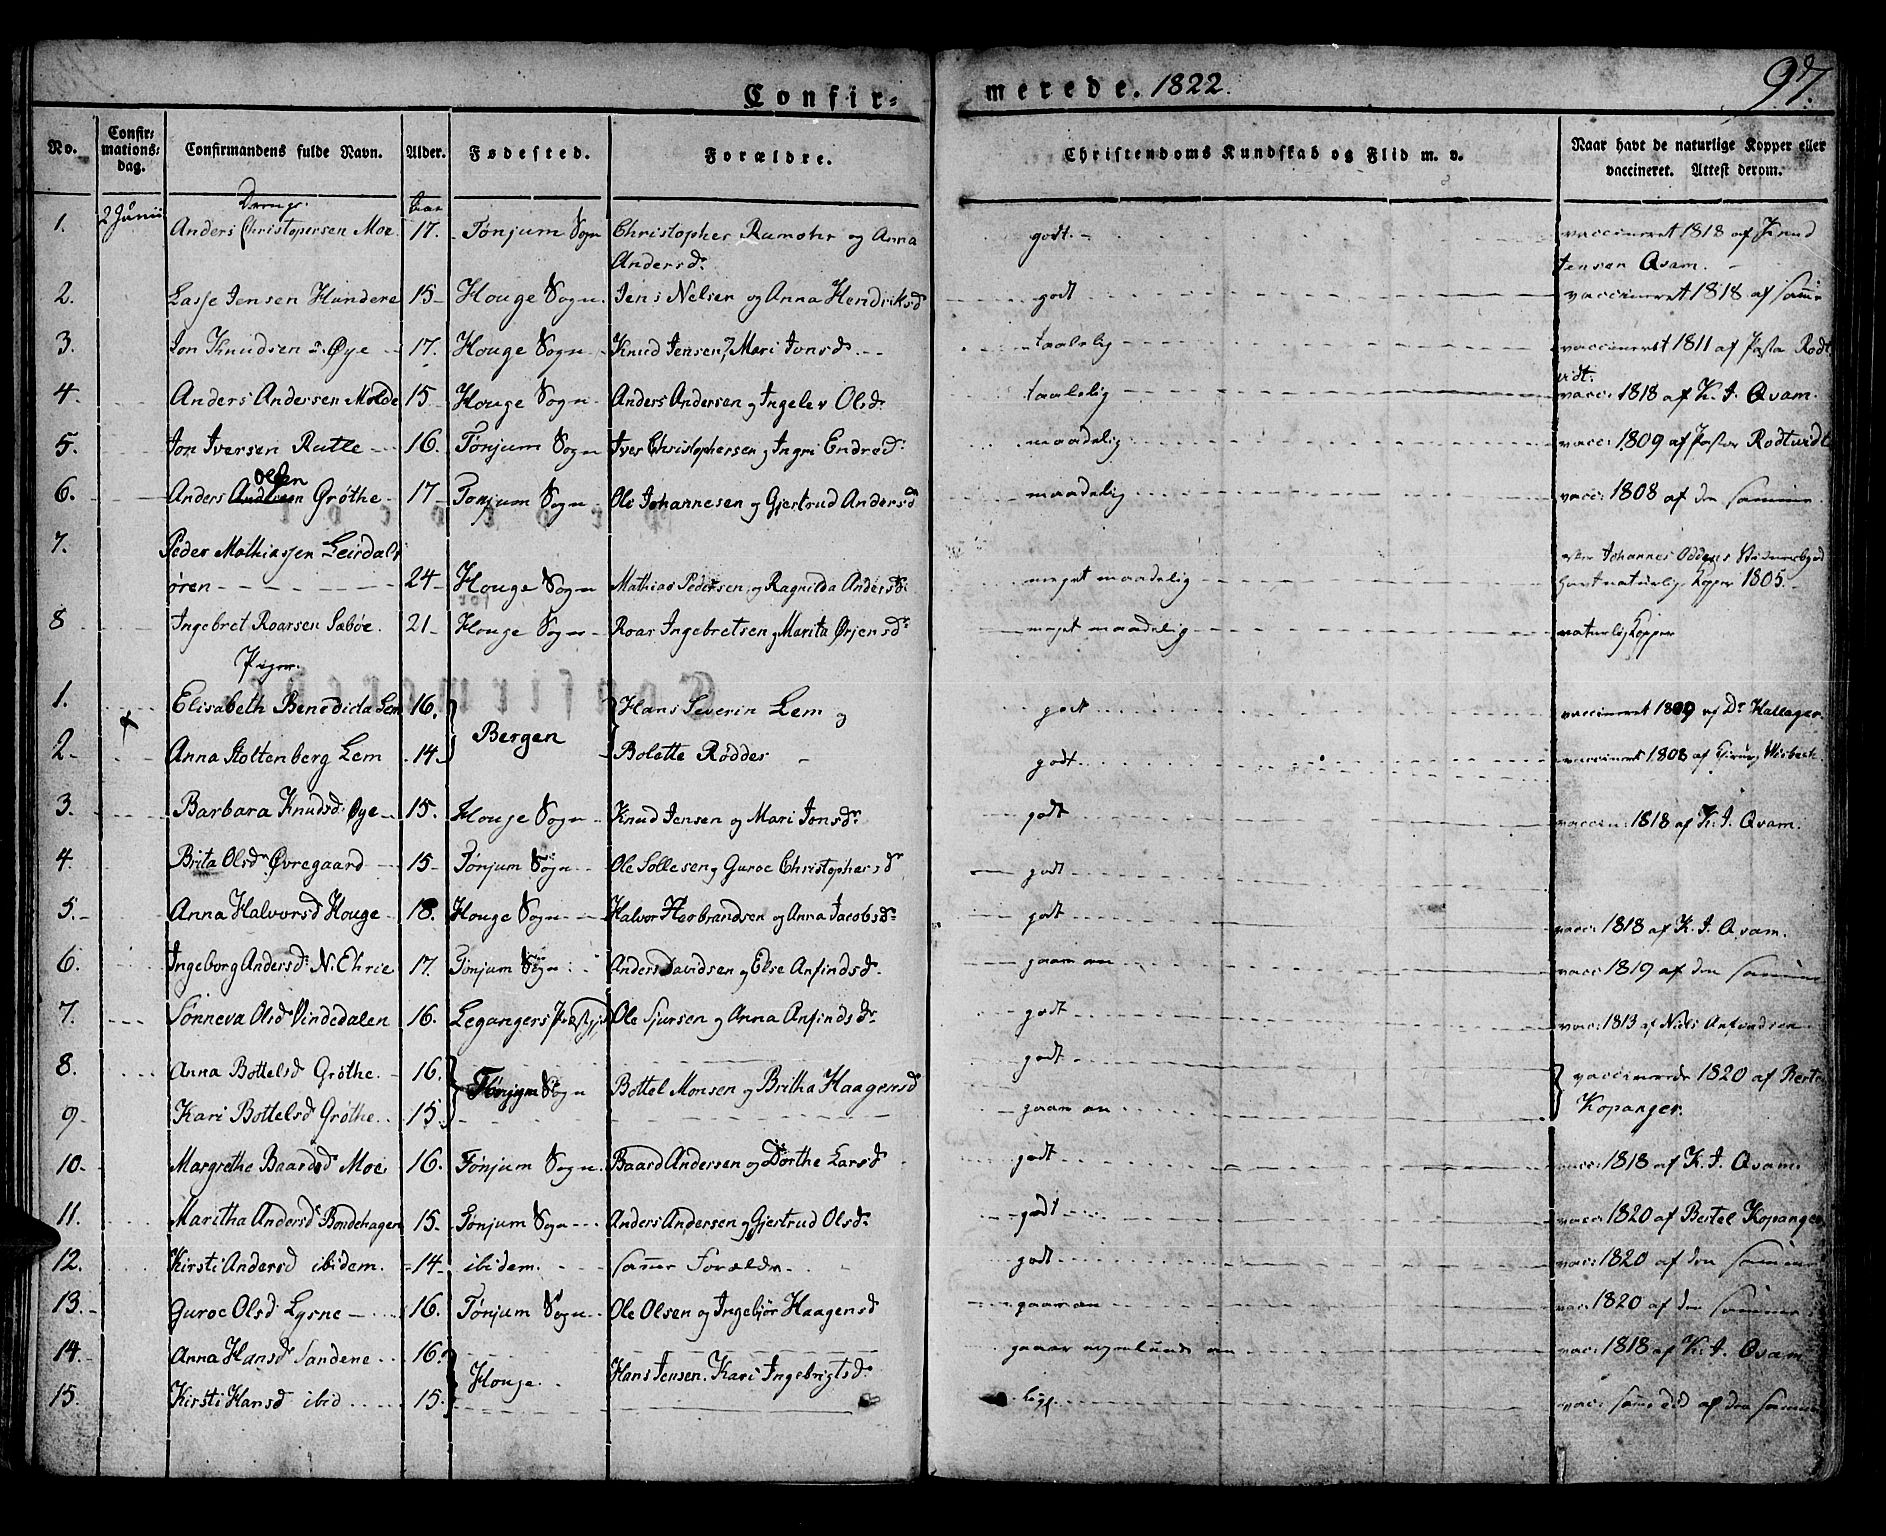 Confir- merede. 1822. 97.
No. Confir-mations-dag. Confirmandens fulde Navn. Alder. Fødested. Forældre. Christendoms Kundskab og Flid m. v. Naar havt de naturlige Kopper eller vaccineret. Attest derom.
Drenge.
1. 2 Junii Anders Christophersen Moe 17. Tønjum Sogn Christopher Ramohr og Anna Andersd: godt vaccineret 1818 af Knud Jensen Qvam.
2. Lasse Jensen Hundere 15 Houge Sogn. Jens Nelsen og Anna Hendriksd godt vaccineret 1818 af samme
3. Jon Knudsen Øye 17. Houge Sogn Knud Jensen, Mari Jonsd: taalelig vaccineret 1811 af Pastor Rodtvidt.
4. Anders Andersen Molde 15 Houge Sogn Anders Andersen og Ingelev Olsd: taalelig vacc: 1818 af K. J. Qvam.
5. Jon Iversen Rutle 16. Tønjum Sogn Iver Christophersen og Ingri Endresd: maadelig vacc: 1809 af Pastor Rodtvidt
6. Anders Olsen Grøthe 17 Tonjum Sogn Ole Johannesen og Gjertrud Andersd maadelig vacc: 1808 af den samme
7. Peder Mathiassen Leirdalsøren 24 Houge Sogn Mathias Pedersen og Ragnilda Andersd: meget maadelig Johannes havt naturlig Kopper 1805.
8 Ingebret Roarsen Sæbøe. 21 Houge Sogn Roar Ingebretsen og Marita Ørjensd: meget maadelig naturlig Kopper
Piger.
1. Elisabeth Benedicta Lem 16. Bergen Hans Severin Lem og godt vaccineret 1809 af Dr Hallager
2. Anna Stoltenberg Lem 14 Bolette Rødder godt vaccineret 1808 af
3. Barbara Knudsd: Øye 15. Houge Sogn Knud Jensen og Mari Jonsd: godt vaccin: 1818 af K. J. Qvam.
4. Brita Olsd: Øvregaard 15 Tønjum Sogn Ole Sollesen og Guroe Christophersd godt
5. Anna Halvorsd Houge 18. Houge Sogn Halvor Herbrandsen og Anna Jacobsd: godt vacc: 1818 af K. J. Qvam.
6. Ingeborg Andersd: N. Ehrie 17. Tønjum Sogn Anders Davidsen og Else Anfindsd. gaar an vacc: 1819 af den samme
7. Sønneva Olsd Vindedalen 16. Legangers Præstgjeld Ole Sjursen og Anna Anfindsd: godt vac: 1813 af Niels Anfindsen
8. Anna Bottelsd Grøthe 16. Tønjum Sogn Bottel Monsen og Britha Haagensd godt vaccinerede 1820 af Bertel Kopanger.
9. Kari Bottelsd Grøthe 15. gaar an
10. Margrethe Baardsd Moe 16. Tønjum Sogn. Baard Andersen og Dorthe Larsd godt vacc: 1818 af K. J. Qvam.
11. Maritha Andersd Bondehagen 15. Tønjum Sogn Anders Andersen og Gjertrud Olsd: godt vacc: 1820 af Bertel Kopanger
12. Kirsti Andersd ibidem. 14. ibidem. samme Forældre godt vac: 1820 af den samme
13. Guroe Olsd: Lysne 16. Tønjum Sogn Ole Olsen og Ingebjør Haagensd gaar an vac: 1820 af den samme
14. Anna Hansd Sandene 16. Houge Hans Jensen. Kari Ingebrigtsd: gaar an vac: 1818 af K. J. Qvam
15. Kirsti Hansd ibid 15. vac: af den samme